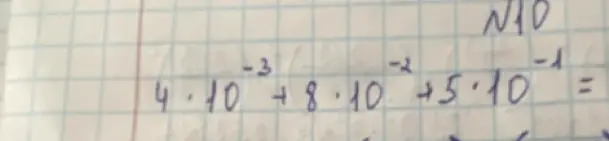 N10
4 · 10⁻³ + 8 · 10⁻² + 5 · 10⁻¹ =